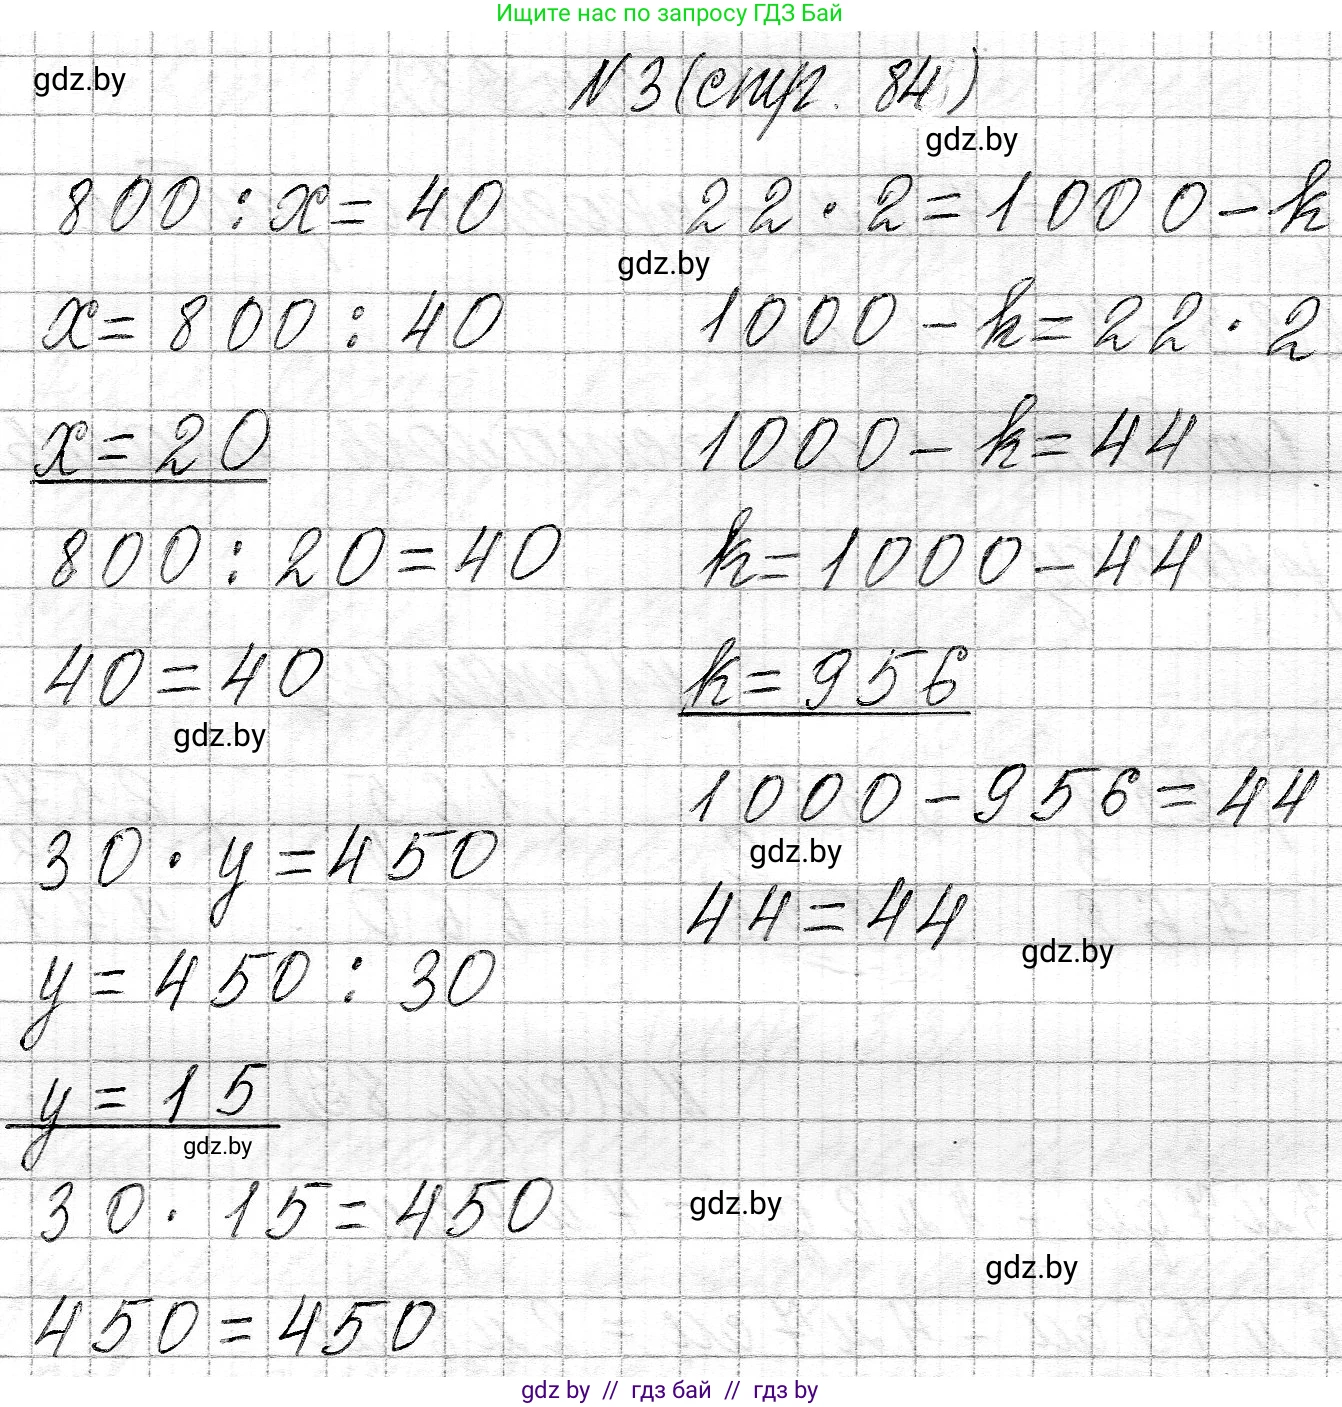 Ищите нас по запросу ГДЗ Бай
gdz.by
N 3 (стр. 84)
gdz.by
800 : x = 40
x = 800 : 40
x = 20
800 : 20 = 40
40 = 40
gdz.by
30 · y = 450
y = 450 : 30
y = 15
gdz.by
30 · 15 = 450
450 = 450
22 · 2 = 1000 - k
gdz.by
1000 - k = 22 · 2
1000 - k = 44
k = 1000 - 44
k = 956
1000 - 956 = 44
gdz.by
44 = 44
gdz.by
gdz.by
gdz.by
gdz by // гдз бай // гдз by